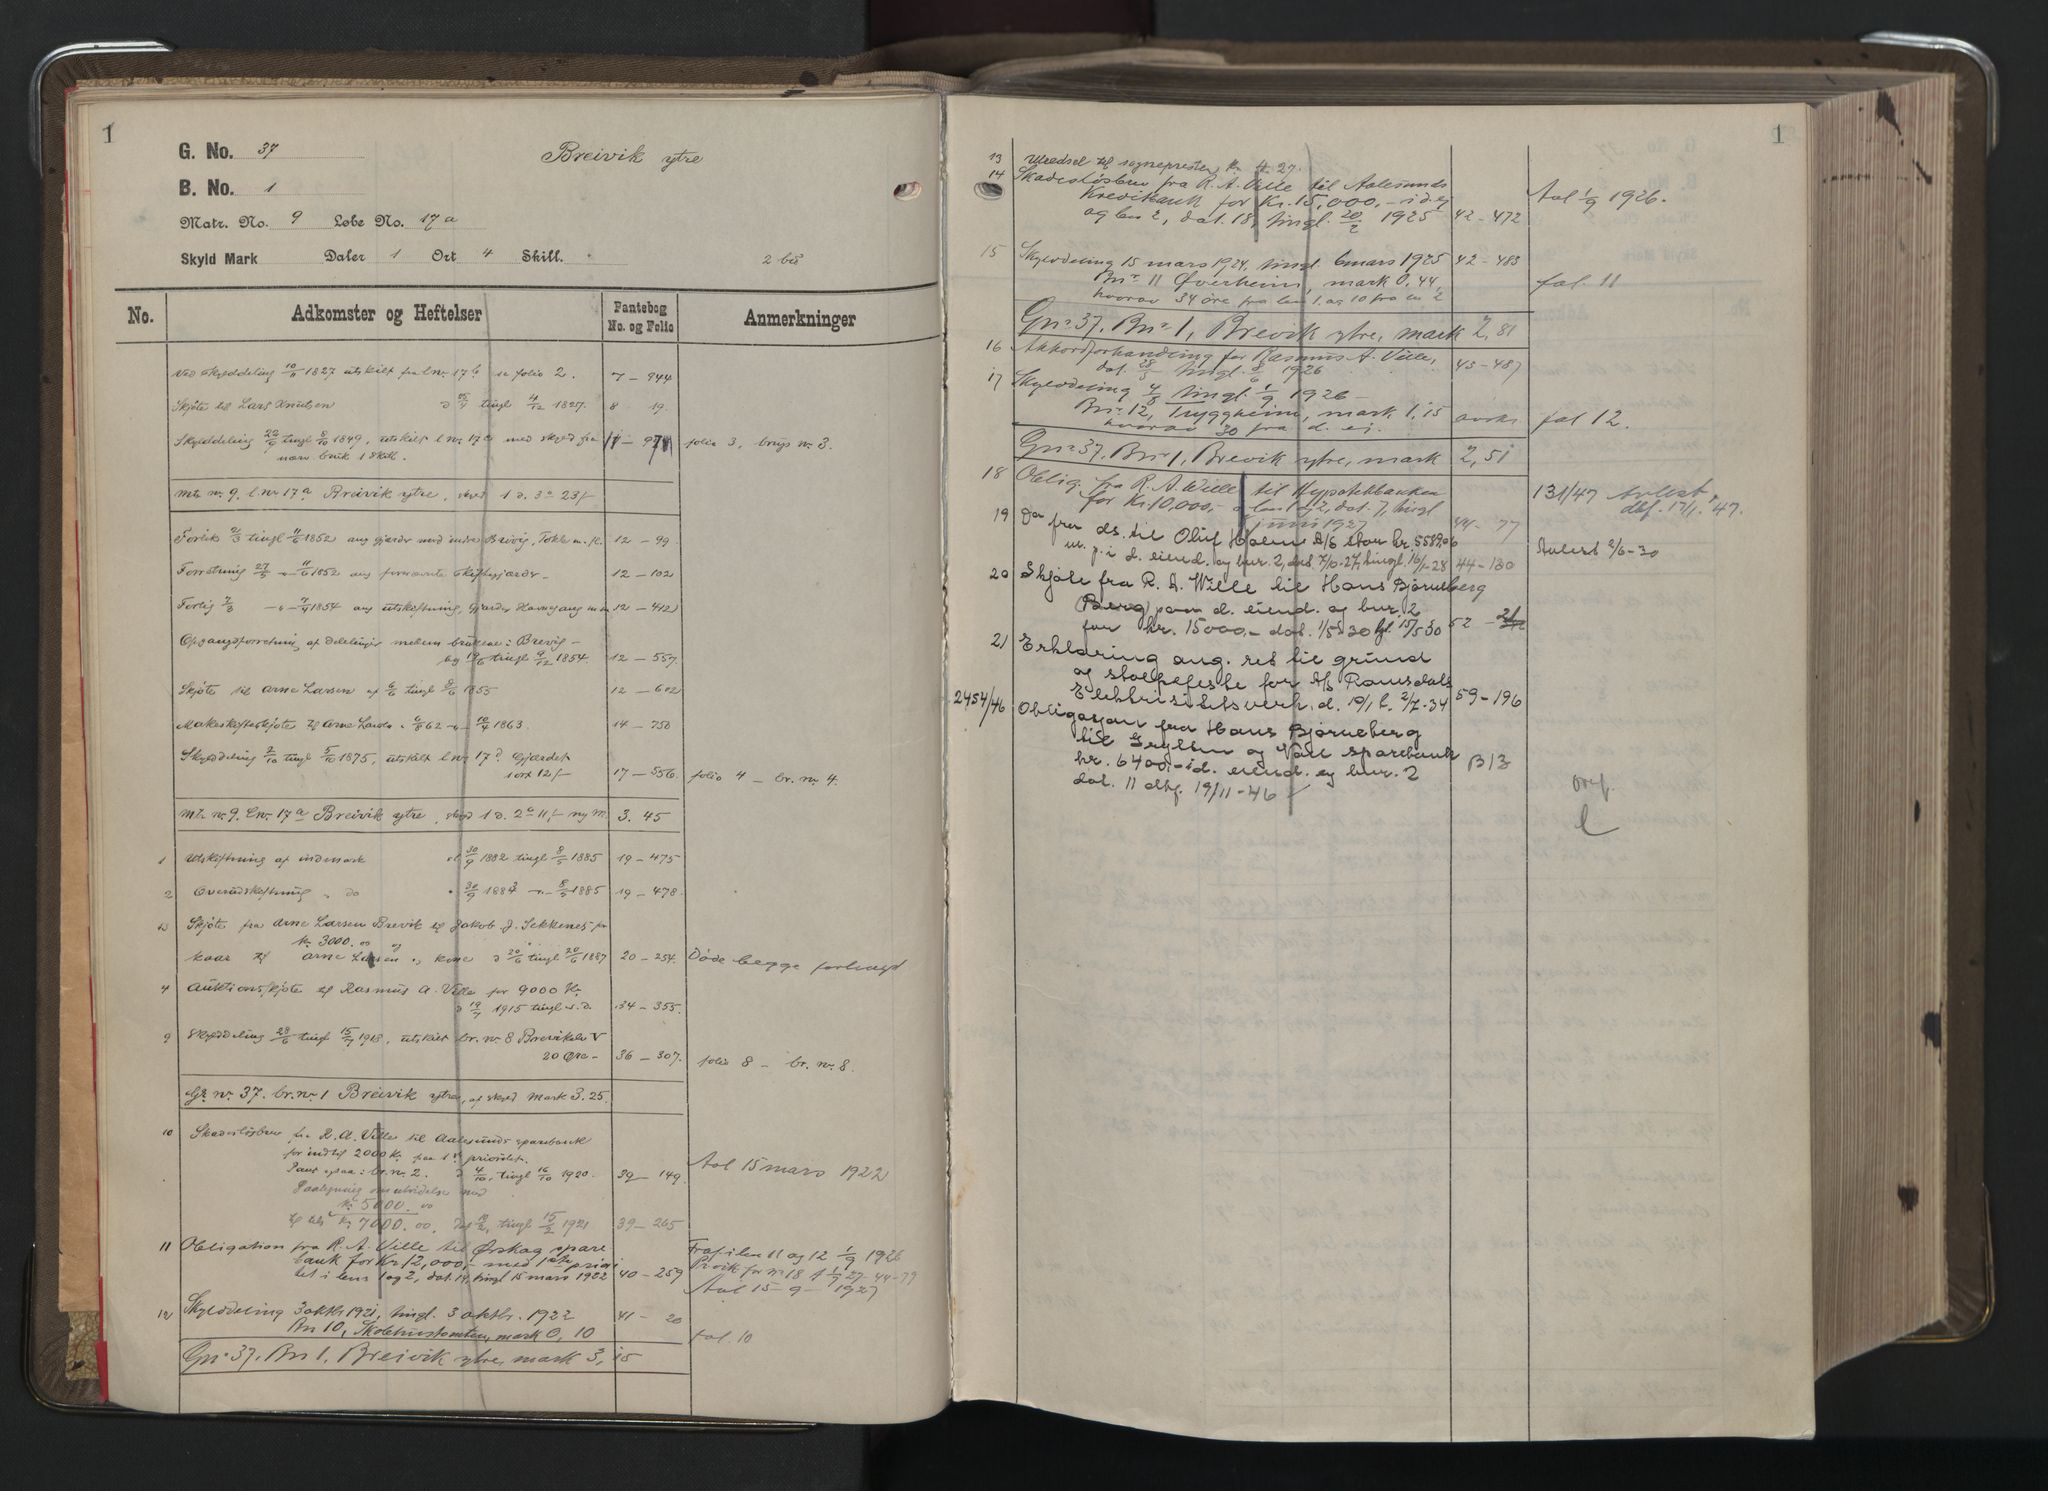 1
G. No. 37
Breivik ytre
B. No. 1
Matr. No. 9 Løbe No. 17 a
Skyld Mark Daler 1 Ort 4 Skill.
2 bd
No. Adkomster og Heftelser Pantebog No. og Folio Anmerkninger
Ved skylddeling 10/11 1827 utskilt fra l.nr. 17 b se folio 2. 7 – 944
Skjøte til Lars Knutsen d 25/9 tingl 4/12 1827. 8 19.
Skylddeling 22/9 tingl 8/10 1849, utskilt l.nr. 17 c med skyld fra 11 – 971 folio 3, brugs nr. 3.
nærv. bruk 1 Skill.
Mtr. nr. 9. l. nr. 17 a Breivik ytre, skyld 1 d. 3 o 23 s
Forlik 2/3 tingl 11/6 1852 ang gjærde med indre Breivig, Tokle m. fl. 12 – 99.
Forretning 27/5 – " – 11/6 1852 ang fornævnte skiftesgjærde – 12 – 102
Forlig 7/3 – " – 7/9 1854 ang utskiftning, gjærder Havnegang m.m. 12 – 412
Opgangsforretning af delelinjer mellem brukene: Brevig –
tingl 9/12 1854. 12 – 557.
Skjøte til Arne Larsen af 6/6 tingl 8/6 1855 12 – 602
Makeskifteskjøte til Arne Larsen 6/8 62 – " – 10/4 1863. 14 – 750
Skylddeling 2/10 tingl 5/10 1875, utskilt l. nr. 17 d Gjærdet
1 ort 12 s 17 – 556. folio 4 – br. nr. 4.
Mtr. nr. 9. l. nr. 17 a Breivik ytre, skyld 1 d. 2 o 11 s ny M. 3. 45
1 Utskiftning af indmark d 30/9 1882 tingl 8/5 1885 19 – 475
2 Overutskiftning " do " 30/9 1884 – " – 8/5 1885 19 – 478.
3 Skjøte fra Arne Larsen Brevik til Jakob J. Sekkenes for
kr. 3000.00 og
kaar til Arne Larsen og kone d 20/6 tingl 20/6 1887 20 – 254. Døde begge forlængst
4 Auktionsskjøte til Rasmus A. Ville for 9000 Kr.
d 19/7 1915 tingl s. d. 34 – 355.
9 Skylddeling 28/6 tingl 15/7 1918, utskilt br. nr. 8 Breviksler V
20 Øre – 36 – 307. folio 8 – br. nr. 8.
Gr. nr. 37. br. nr. 1 Breivik ytre, af skyld mark 3.25.
10 Skadesløsbrev fra R. A. Ville til Aalesunds sparebank
for indtil 2000 Kr. paa 1ste prioritet.
Pant ogsaa: br. nr. 2. d 4/10, tingl 16/10 1920. 39 – 149. Aol 15 mars 1922
Paategning om utvidelse med
kr 5000.00
til tils kr 7000.00. dat 10/2, tingl 15/2 1921 39 – 265
11 Obligation fra R. A. Ville til Ørskog spare
bank for Kr. 12,000,– med 1ste priori
tet i lens 1 og 2, dat. 14, tingl 15 mars 1922 40 – 259
Frafi len 11 og 12 1/9 1926
Pr vik for nr 18 1/9 27 – 44 – 79
Aol 15 – 9 – 1927
12 Skylddeling 3 oktbr 1921, tingl. 3 oktbr. 1922 41 – 20
Bn 10, Skolehustomten, mark 0,10 fol. 10
Gnr 37, Bn 1, Breivik ytre, mark 3,15
1
13 Utredsel til sognepresten kr. 4.27.
14 Skadesløsbrev fra R. A. Ville til Aalesunds
Kreditbank for Kr. 15,000,– i d. e.
og len 2, dat. 18, tingl. 20/2 1925 42 – 472 Aol 1/9 1926.
15 Skylddeling 15 mars 1924, tingl. 6 mars 1925 42 – 483
Bnr 11 Øverheim, mark 0,44, fol. 11
hvorav 34 øre fra len 1 og 10 fra en 2
Gnr 37, Bnr 1, Breivik ytre, mark 2,81
16 Akkordforhandling for Rasmus A. Ville,
dat. 28/5 tingl. 8/6 1926 43 – 487
17 Skylddeling 4/8 tingl. 1/9 1926 –
Bnr 12, Tryggheim, mark 1.15 fol 12.
hvorav 30 fra d. ei.
Gnr 37, Bnr 1, Breivik ytre, mark 2,51
18 Oblig. fra R. A. Wille til Hypotekbanken
for Kr. 10,000,– i len 1 og 2, dat. 7, tingl
juni 1927 44 – 77
131/47 Avlest,
dbf. 17/1. '47.
19 Do fra ds. til Oluf Holm A/S stor kr. 5589.06
m. p. i d. eiend. og bnr. 2, dat 7/10-27, tingl. 16/1-28 44 – 130 Avlest 2/6-30
20 Skjøte fra R. A. Wille til Hans Bjørneberg
Berg paa d. eiend. og bnr. 2
for kr. 15000.– dat. 1/5 30 tgl. 15/5 30 52 – 21
21 Erklæring ang. ret til grund
og stolpefeste for A/S Ramsdals
Elektrisitetsverk, d. 19/1 t. 2/7-34 59 – 196
2454/46 Obligasjon fra Hans Bjørneberg
til Grytten og Voll sparebank
kr. 6400,– i d. eiend. og bnr. 2 B13
dat. 11 dbf. 19/11-46
ovf.